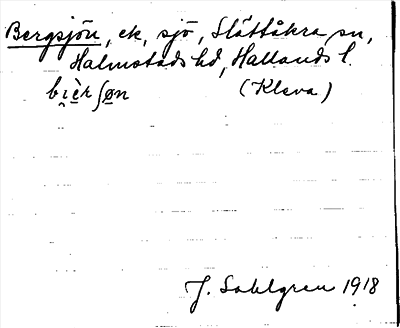 Bergsjön, ek, sjö, Slättåkra sn,
Halmstads hd, Hallands l.
bi̯èrʃøn (Kleva)
J. Sahlgren 1918